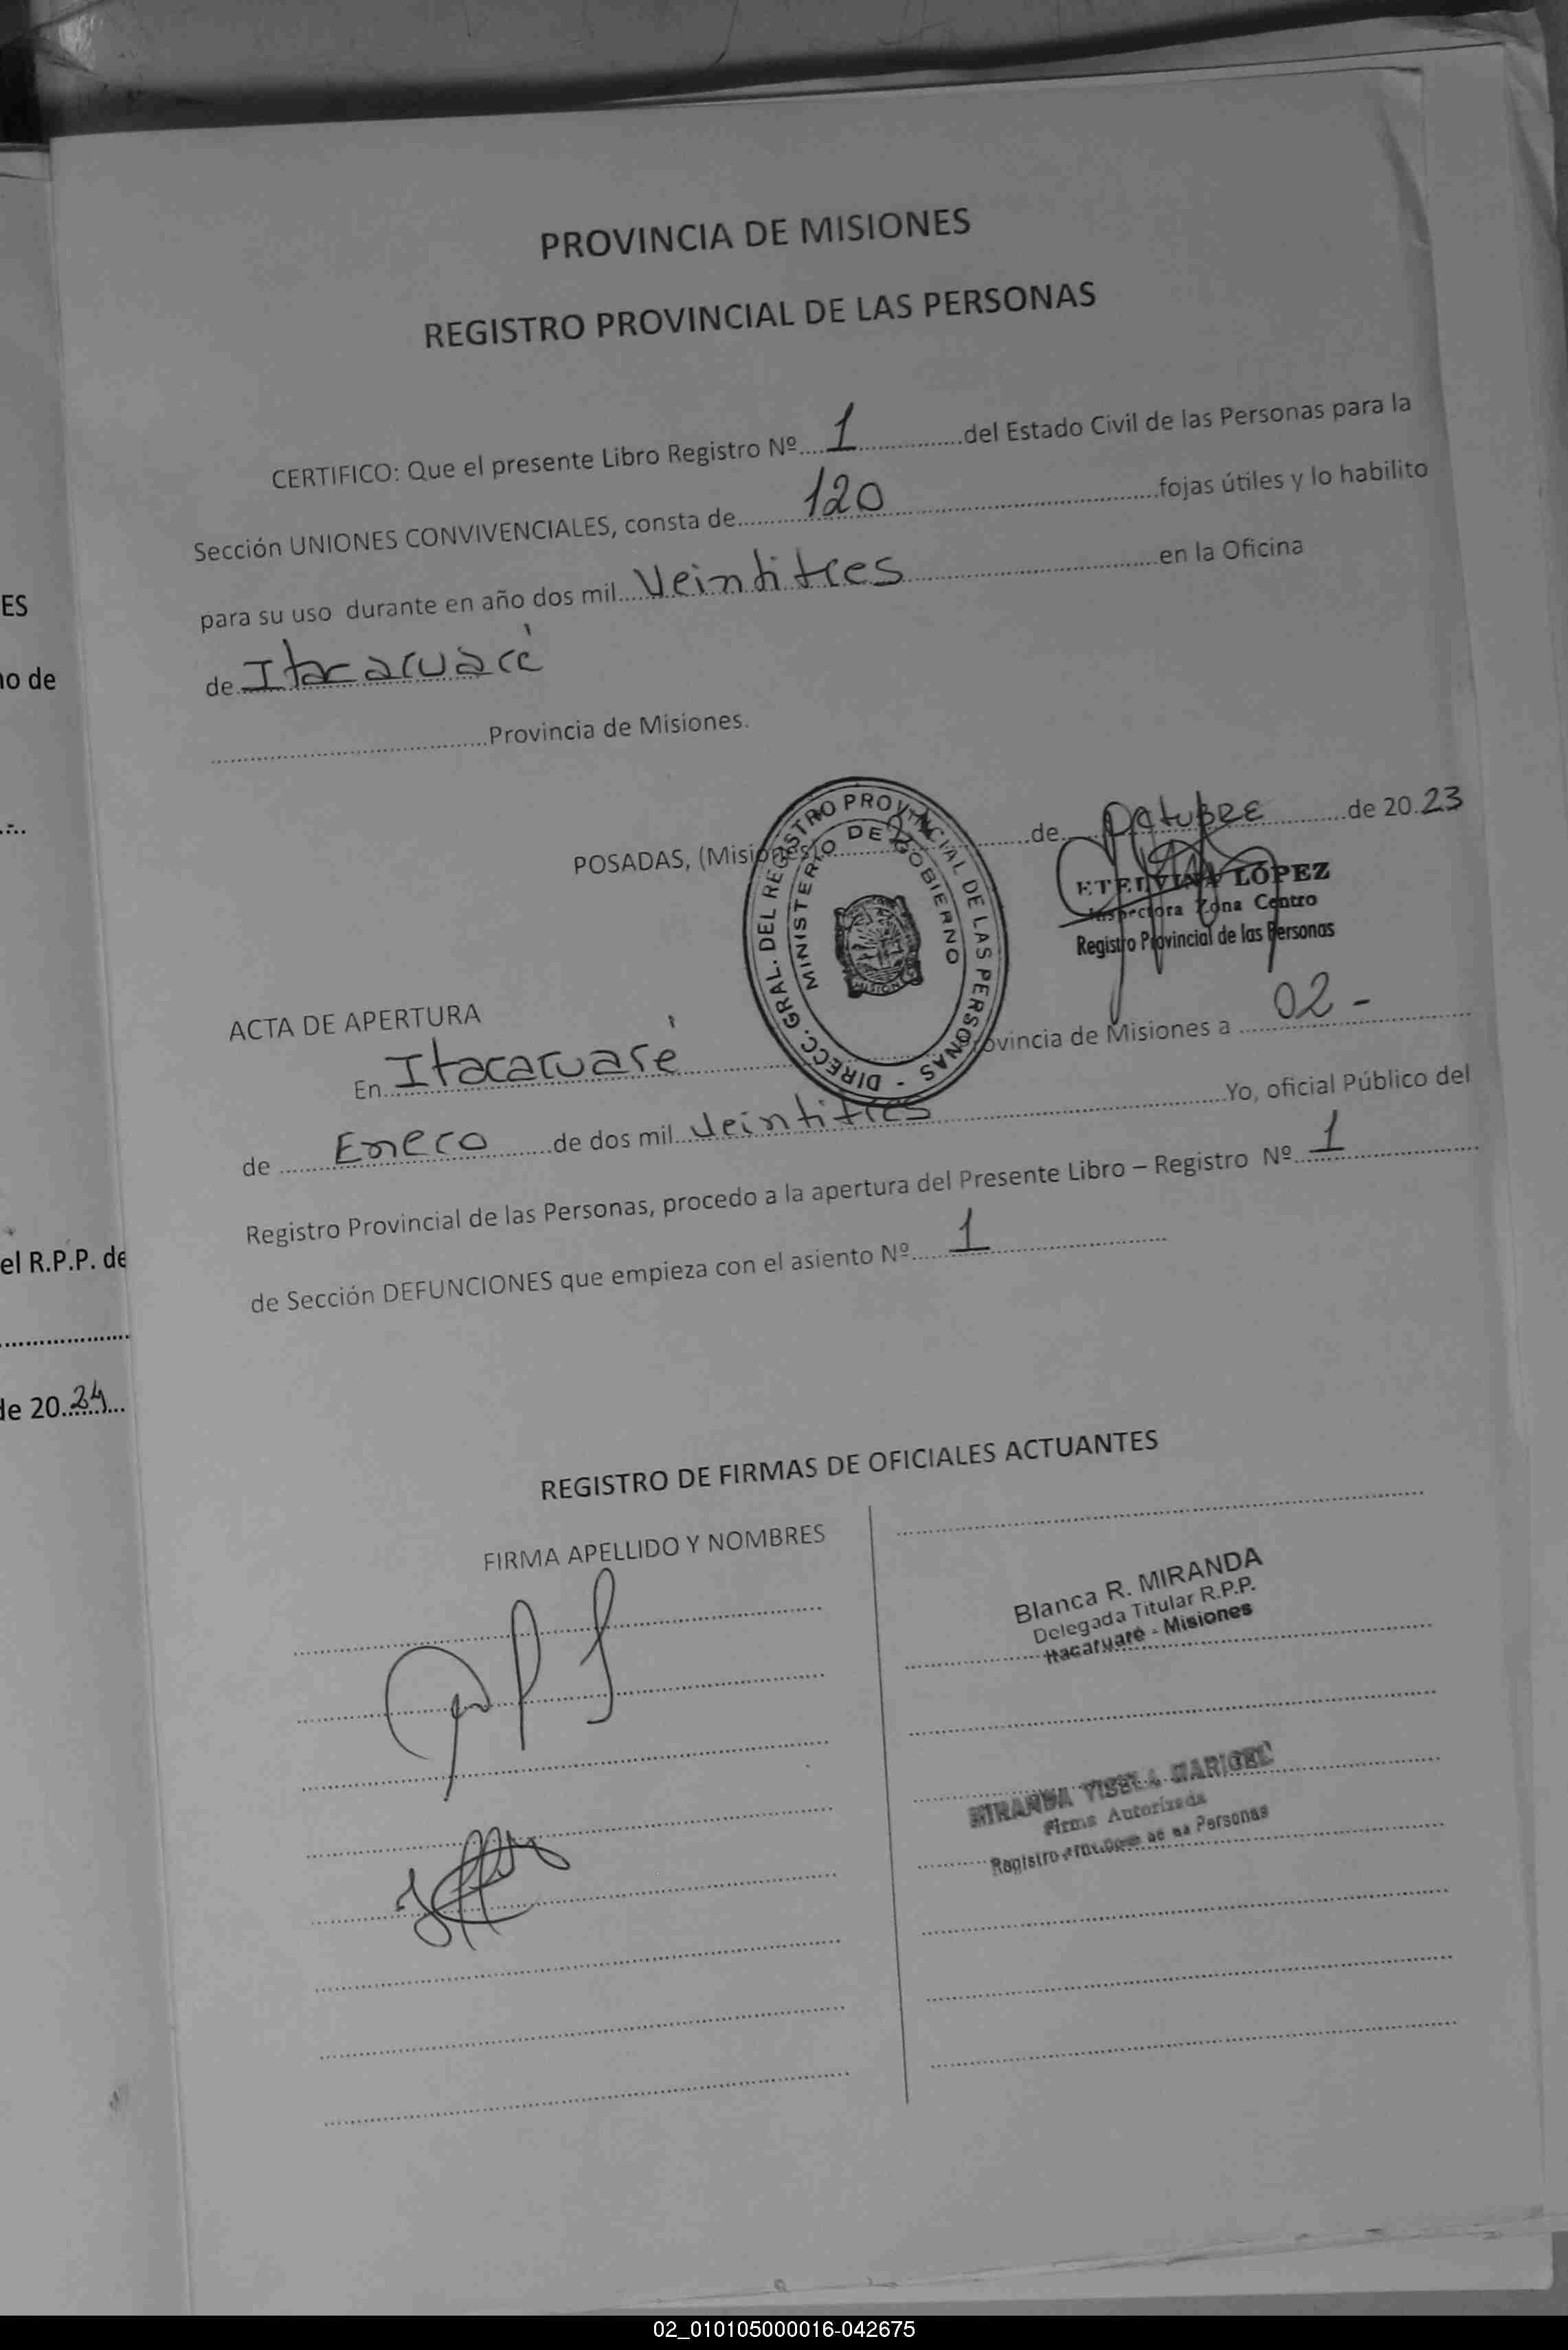 PROVINCIA DE MISIONES
REGISTRO PROVINCIAL DE LAS PERSONAS
CERTIFICO: Que el presente Libro Registro Nº....1................del Estado Civil de las Personas para la
Sección UNIONES CONVIVENCIALES, consta de.......120..............................fojas útiles y lo habilito
para su uso durante en año dos mil....Veintitres..............................en la Oficina
de Itacaruaré
......................................Provincia de Misiones.
POSADAS, (Misiones)..............................de....Octubre............de 20.23
DIRECC. GRAL. DEL REGISTRO PROVINCIAL DE LAS PERSONAS -
MINISTERIO DE GOBIERNO
MISIONES
ETELVINA LÓPEZ
Inspectora Zona Centro
Registro Provincial de las Personas
ACTA DE APERTURA
En Itacaruaré ..............................Provincia de Misiones a ....02 -..............
de ........Enero........de dos mil..Veintitres..............................Yo, oficial Público del
Registro Provincial de las Personas, procedo a la apertura del Presente Libro – Registro Nº...1..................
de Sección DEFUNCIONES que empieza con el asiento Nº.....1........................
REGISTRO DE FIRMAS DE OFICIALES ACTUANTES
FIRMA APELLIDO Y NOMBRES
Blanca R. MIRANDA
Delegada Titular R.P.P.
Itacaruaré - Misiones
MIRANDA YISELA MARICEL
Firma Autorizada
Registro Personas
ES
no de
el R.P.P. de
de 20.24...
02_010105000016-042675